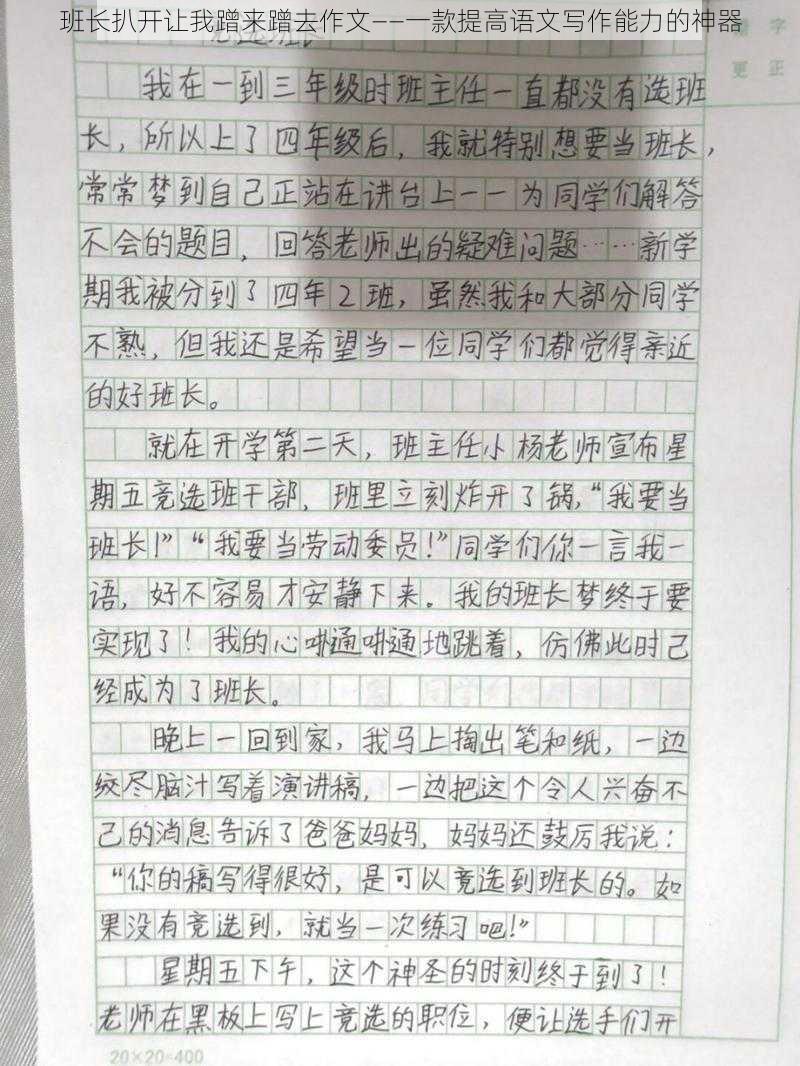 班长扒开让我蹭来蹭去作文——一款提高语文写作能力的神器
字
更 正
我在一到三年级时班主任一直都没有选班
长，所以上了四年级后，我就特别想要当班长，
常常梦到自己正站在讲台上——为同学们解答
不会的题目，回答老师出的疑难问题……新学
期我被分到了四年2班，虽然我和大部分同学
不熟，但我还是希望当一位同学们都觉得亲近
的好班长。
就在开学第二天，班主任小杨老师宣布星
期五竞选班干部，班里立刻炸开了锅，“我要当
班长！”“我要当劳动委员！”同学们你一言我一
语，好不容易才安静下来。我的班长梦终于要
实现了！我的心咻通咻通地跳着，仿佛此时己
经成为了班长。
晚上一回到家，我马上掏出笔和纸，一边
绞尽脑汁写着演讲稿，一边把这个令人兴奋不
己的消息告诉了爸爸妈妈，妈妈还鼓厉我说：
“你的稿写得很好，是可以竞选到班长的。如
果没有竞选到，就当一次练习吧！”
星期五下午，这个神圣的时刻终于到了！
老师在黑板上写上竞选的职位，便让选手们开
20×20=400